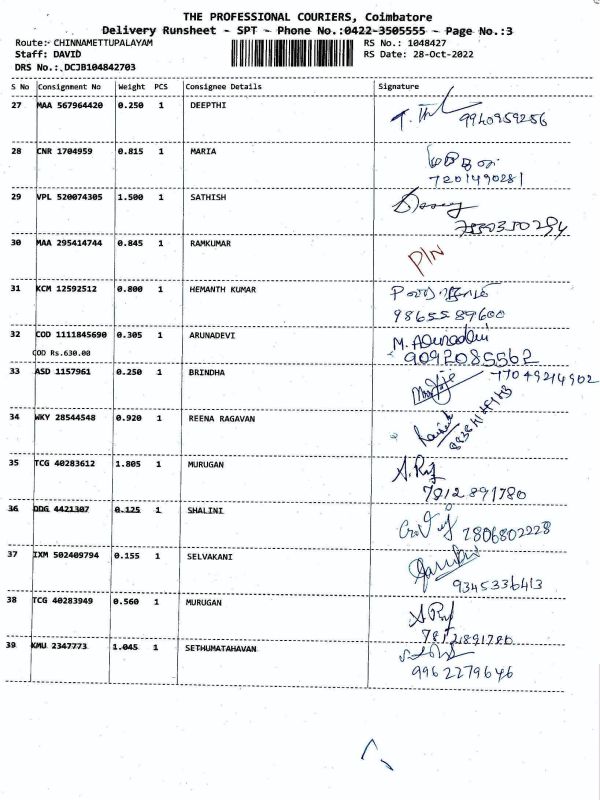 THE PROFESSIONAL COURIERS, Coimbatore
Delivery Runsheet - SPT - Phone No.:0422-3505555 - Page No.:3
Route:- CHINNAMETTUPALAYAM RS No.: 1048427
Staff: DAVID RS Date: 28-Oct-2022
DRS No.:.DCJB104842703
S No Consignment No Weight PCS Consignee Details Signature
27 MAA 567964420 0.250 1 DEEPTHI
9940959256
28 CNR 1704959 0.815 1 MARIA
7201490281
29 VPL 520074305 1.500 1 SATHISH
30 MAA 295414744 0.845 1 RAMKUMAR
P/N
31 KCM 12592512 0.800 1 HEMANTH KUMAR
9865589600
32 COD 1111845690 0.305 1 ARUNADEVI M. Arunadevi
COD Rs.630.00 9092085562
33 ASD 1157961 0.250 1 BRINDHA
77049214902
34 WKY 28544548 0.920 1 REENA RAGAVAN
35 TCG 40283612 1.805 1 MURUGAN
7812891780
36 DDG 4421307 0.125 1 SHALINI
7806802228
37 IXM 502409794 0.155 1 SELVAKANI
9345336413
38 TCG 40283949 0.560 1 MURUGAN
7812891780
39 KMU 2347773 1.045 1 SETHUMATAHAVAN
9962279646